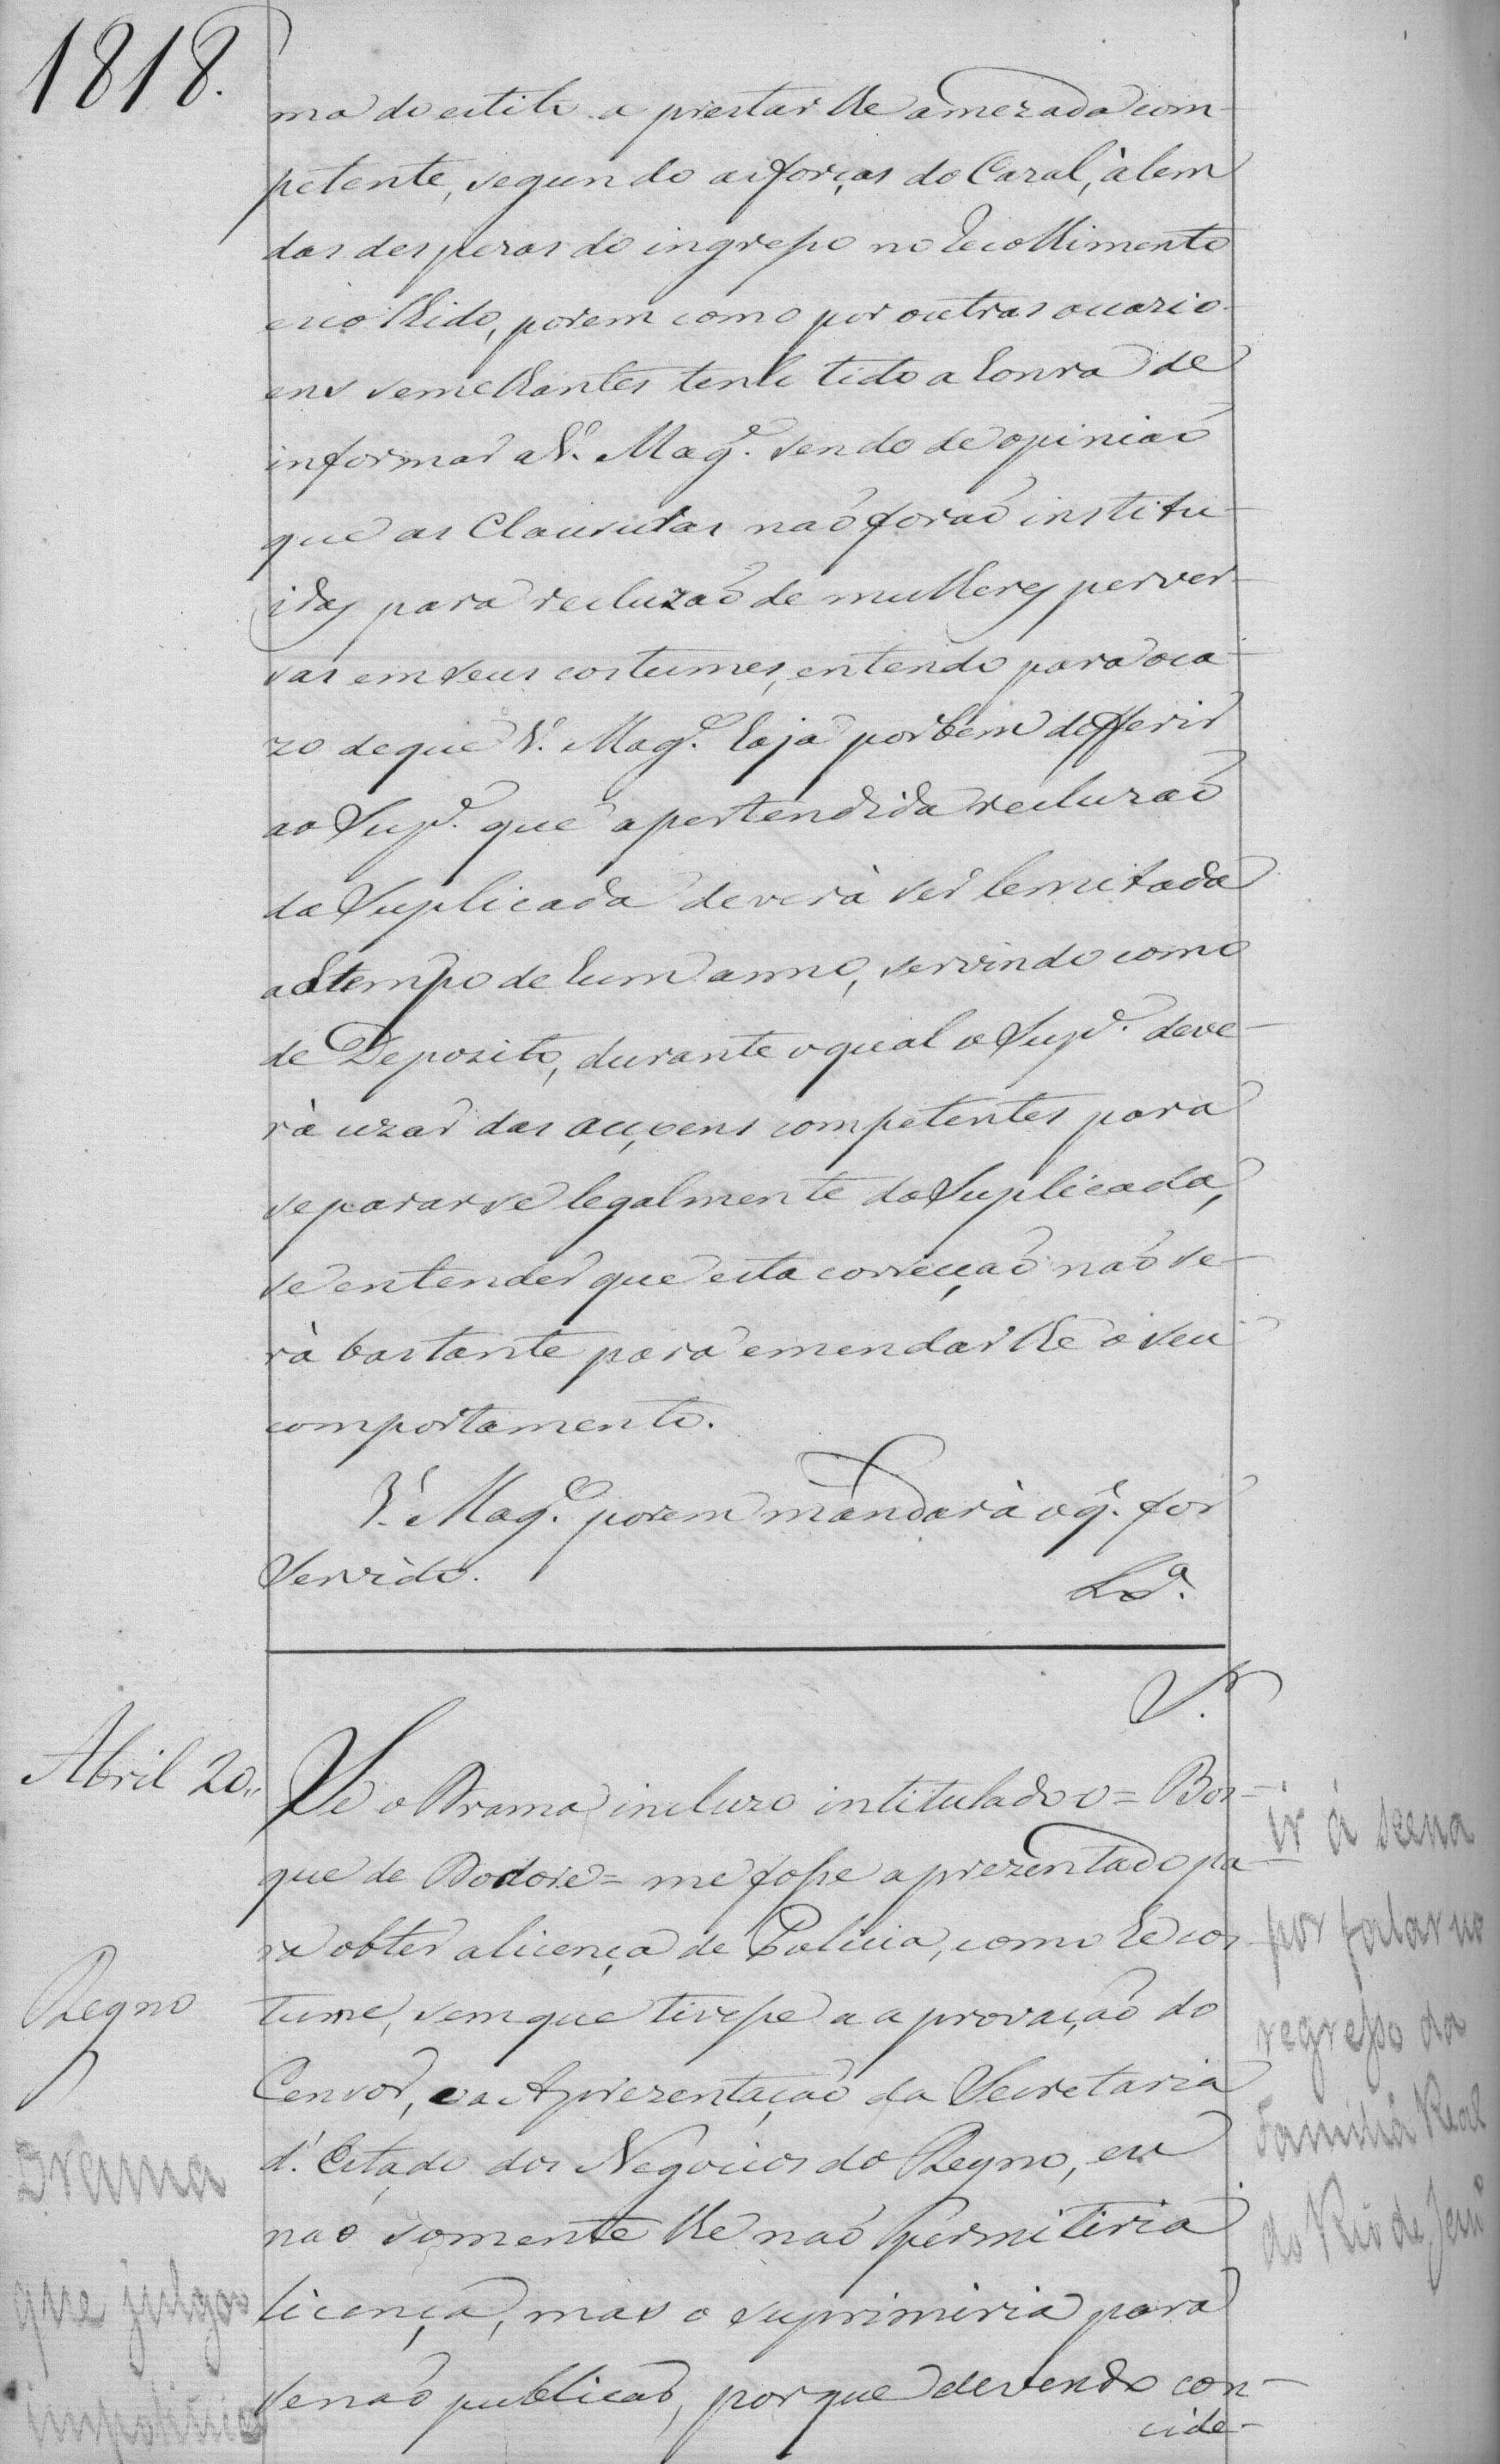 1818.
ma do estilo a prestar lhe a mezada com-
petente, segundo as forças do Cazal, àlem
das despezas do ingresso no recolhimento
escolhido, porem como por outras occazio-
ens semelhantes tenho tido a honra de
informar a V. Mag.e sendo de opinião
que as Clauzulas não forão institu-
idas para recluzaõ de mulheres perver-
sas em seus costumes, entendo para o ca-
zo de que V. Mag.e haja por bem defferir
ao Sup.e que a pertendida recluzaõ
da Suplicada deverà ser lemitada
ao tempo de hum anno, servindo como
de Depozito, durante o qual o Sup.e deve-
rà uzar das acçoens competentes para
separar se legalmente da Suplicada,
se entender que esta correcçaõ naõ se-
rà bastante para emendar lhe o seu
comportamento.
V. Mag.e porem mandarà o q. for
Servido.
Lx.a
S.r
Abril 20,,
Se o Drama incluzo intitulado o = Bos-
que de Dodore = me fosse aprezentado pa-
ra obter a licença de Policia, como he cos-
tume, sem que tivesse a aprovação do
Censor, e a Aprezentaçaõ da Secretaria
d'Estado dos Negocios do Reyno, eu
naõ somente lhe naõ permitiria
licença, mas o suprimiria para
se naõ publicar, porque devendo con-
cide-
Reyno
Drama
que julgo
impolitico
ir á scena
por falar no
regresso da
Familia Real
do Rio de Jan.o